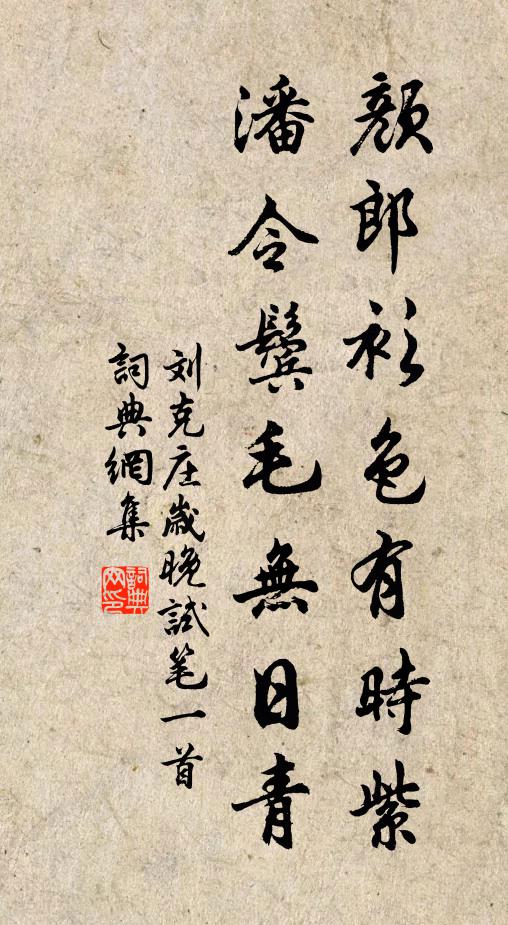 顏郎衫色有時紫
潘令鬢毛無日青
刘克庄歲晚試笔一首
詞典網集
詞典网印